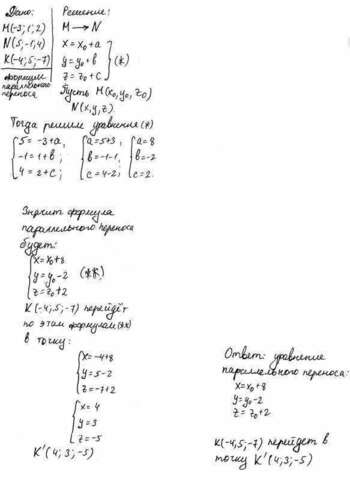 Дано:
M(-3; 1; 2)
N(5; -1; 4)
K(-4; 5; -7)
формулы
параллельного
переноса
Решение:
M → N
x = x₀+a
y = y₀+b (*)
z = z₀+c
Пусть M(x₀, y₀, z₀)
N(x, y, z).
Тогда решим уравнения (*)
5 = -3+a, a = 5+3, a = 8
-1 = 1+b; b = -1-1, b = -2
4 = 2+c; c = 4-2; c = 2.
Значит формула
параллельного переноса
будет:
x = x₀+8
y = y₀-2 (**)
z = z₀+2
K(-4; 5; -7) перейдёт
по этим формулам (**)
в точку:
x = -4+8
y = 5-2
z = -7+2
x = 4
y = 3
z = -5
K'(4; 3; -5)
Ответ: уравнение
параллельного переноса:
x = x₀+8
y = y₀-2
z = z₀+2
K(-4; 5; -7) перейдет в
точку K'(4; 3; -5)